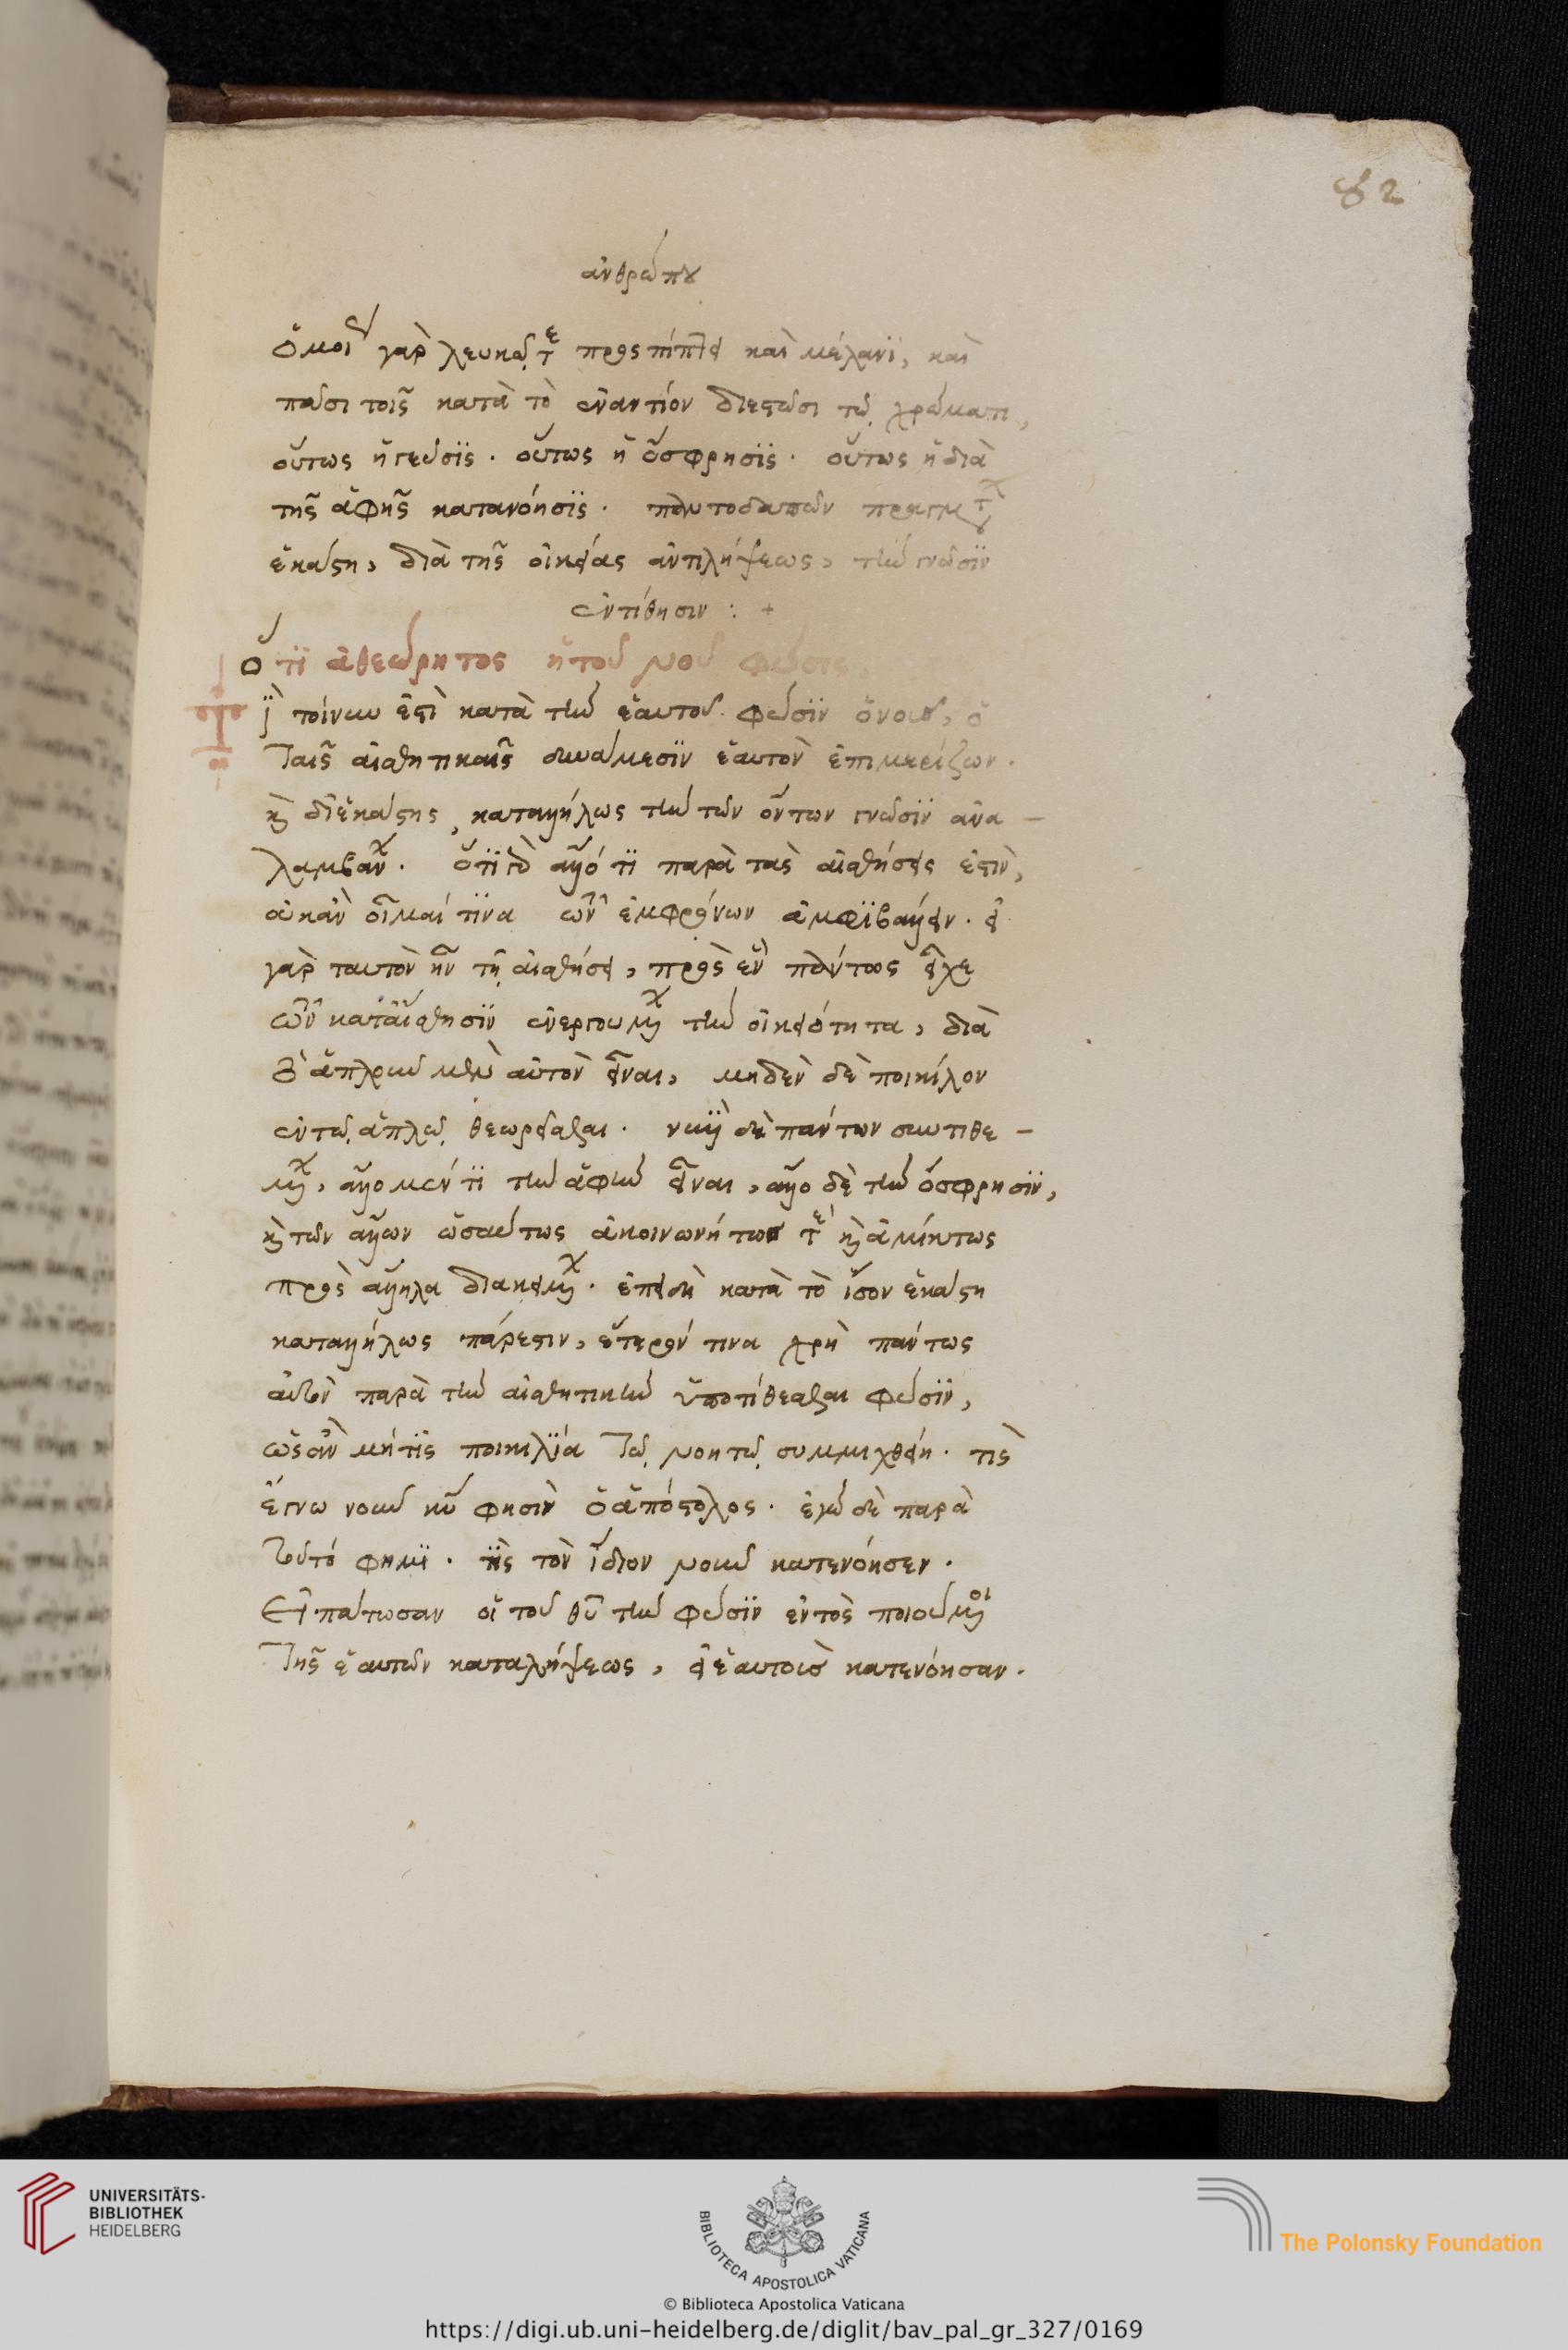 82
ἀνθρώπου
ὅμοι γὰρ λευκῷ τε προσπίπτει καὶ μέλανι, καὶ
πᾶσι τοῖς κατὰ τὸ ἐναντίον διεστῶσι τῷ χρώματι,
οὕτως ἡ γεῦσϊς · οὕτως ἡ ὄσφρησϊς · οὕτως ἡ διὰ
τῆς ἁφῆς κατανόησϊς · παντοδαπῶν πραγμάτ
ἑκάστη, διὰ τῆς οἰκείας ἀντιλήψεως, τὴν γνῶσϊν
ἐντίθησιν : +
ὅτϊ ἀθεώρητος ἡ τοῦ νοῦ φύσις
τί τοίνυν ἐστὶ κατὰ τὴν ἑαυτοῦ φύσϊν ὁ νοῦς, ὁ
ταῖς αἰσθητικαῖς δυνάμεσϊν ἑαυτὸν ἐπιμερίζων ·
κ̀ δι' ἑκάστης καταλλήλως τὴν τῶν ὄντων γνῶσϊν ἀνα –
λαμβάν · ὅτϊ γὰρ ἄλλό τϊ παρὰ τὰς αἰσθήσεις ἐστὶν,
οὐκ ἂν οἶμαί τϊνα τῶν ἐμφρόνων ἀμφϊβάλλειν · εἰ
γὰρ ταυτὸν ἦν τῇ αἰσθήσει, πρὸς ἓν πάντως εἶχε
τῶν κατ' αἴσθησϊν ἐνεργουμ τὴν οἰκειότητα, διὰ
τὸ ἁπλοῦν μὲν αὐτὸν εἶναι, μηδὲν δὲ ποικίλον
ἐν τῷ ἁπλῷ θεωρεῖσθαι · νυνὶ δὲ πάντων συντιθε –
μ, ἄλλο μέν τϊ τὴν ἁφὴν εἶναι, ἄλλο δὲ τὴν ὄσφρησϊν,
κ̀ τῶν ἄλλων ὡσαύτως ἀκοινωνήτως τε κ̀ ἀμίκτως
πρὸς ἄλληλα διακειμ · ἐπειδὴ κατὰ τὸ ἴσον ἑκάστη
καταλλήλως πάρεστιν, ἕτερόν τινα χρὴ πάντως
αὐτὸν παρὰ τὴν αἰσθητικὴν ὑποτίθεσθαι φύσϊν,
ὡς ἂν μή τϊς ποικιλϊία τῷ νοητῷ συμμιχθείη · τὶς
ἔγνω νοῦν κυ φησὶν ὁ ἀπόστολος · ἐγὼ δὲ παρὰ
τοῦτό φημϊ · τϊς τὸν ἴδιον νοῦν κατενόησεν ·
Εἰπάτωσαν οἱ τοῦ θυ τὴν φύσϊν ἐντὸς ποιούμοι
τῆς ἑαυτῶν καταλήψεως, εἰ ἑαυτοὺς κατενόησαν ·
UNIVERSITÄTS-
BIBLIOTHEK
HEIDELBERG
BIBLIOTECA APOSTOLICA VATICANA
© Biblioteca Apostolica Vaticana
The Polonsky Foundation
https://digi.ub.uni-heidelberg.de/diglit/bav_pal_gr_327/0169